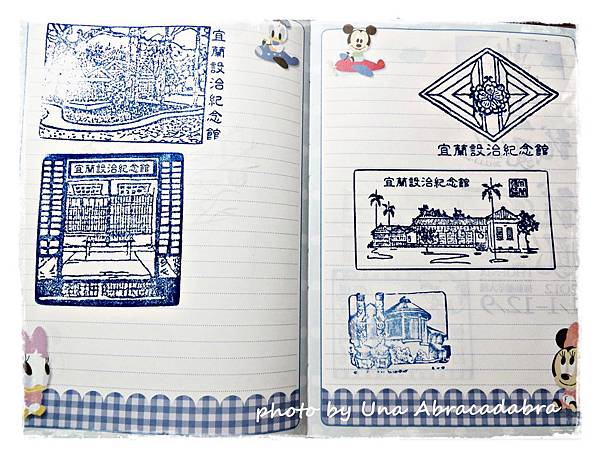 宜蘭設治紀念館
宜蘭設治紀念館
宜蘭設治紀念館
宜蘭設治紀念館
photo by Una Abracadabra